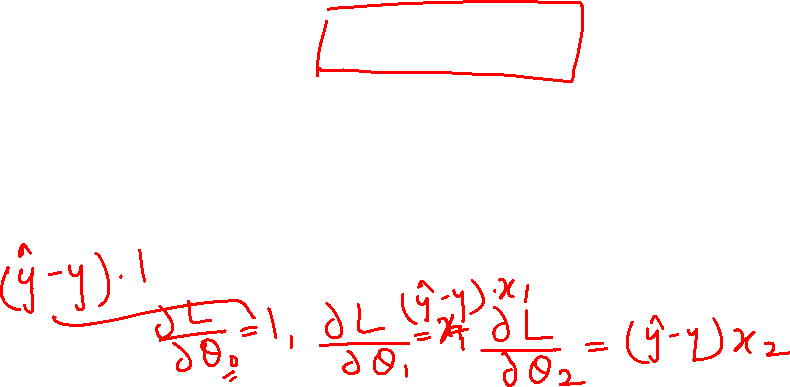 (ŷ-y)·1
∂L/∂θ₀ = 1, ∂L/∂θ₁ = (ŷ-y)·x₁ ∂L/∂θ₂ = (ŷ-y)x₂